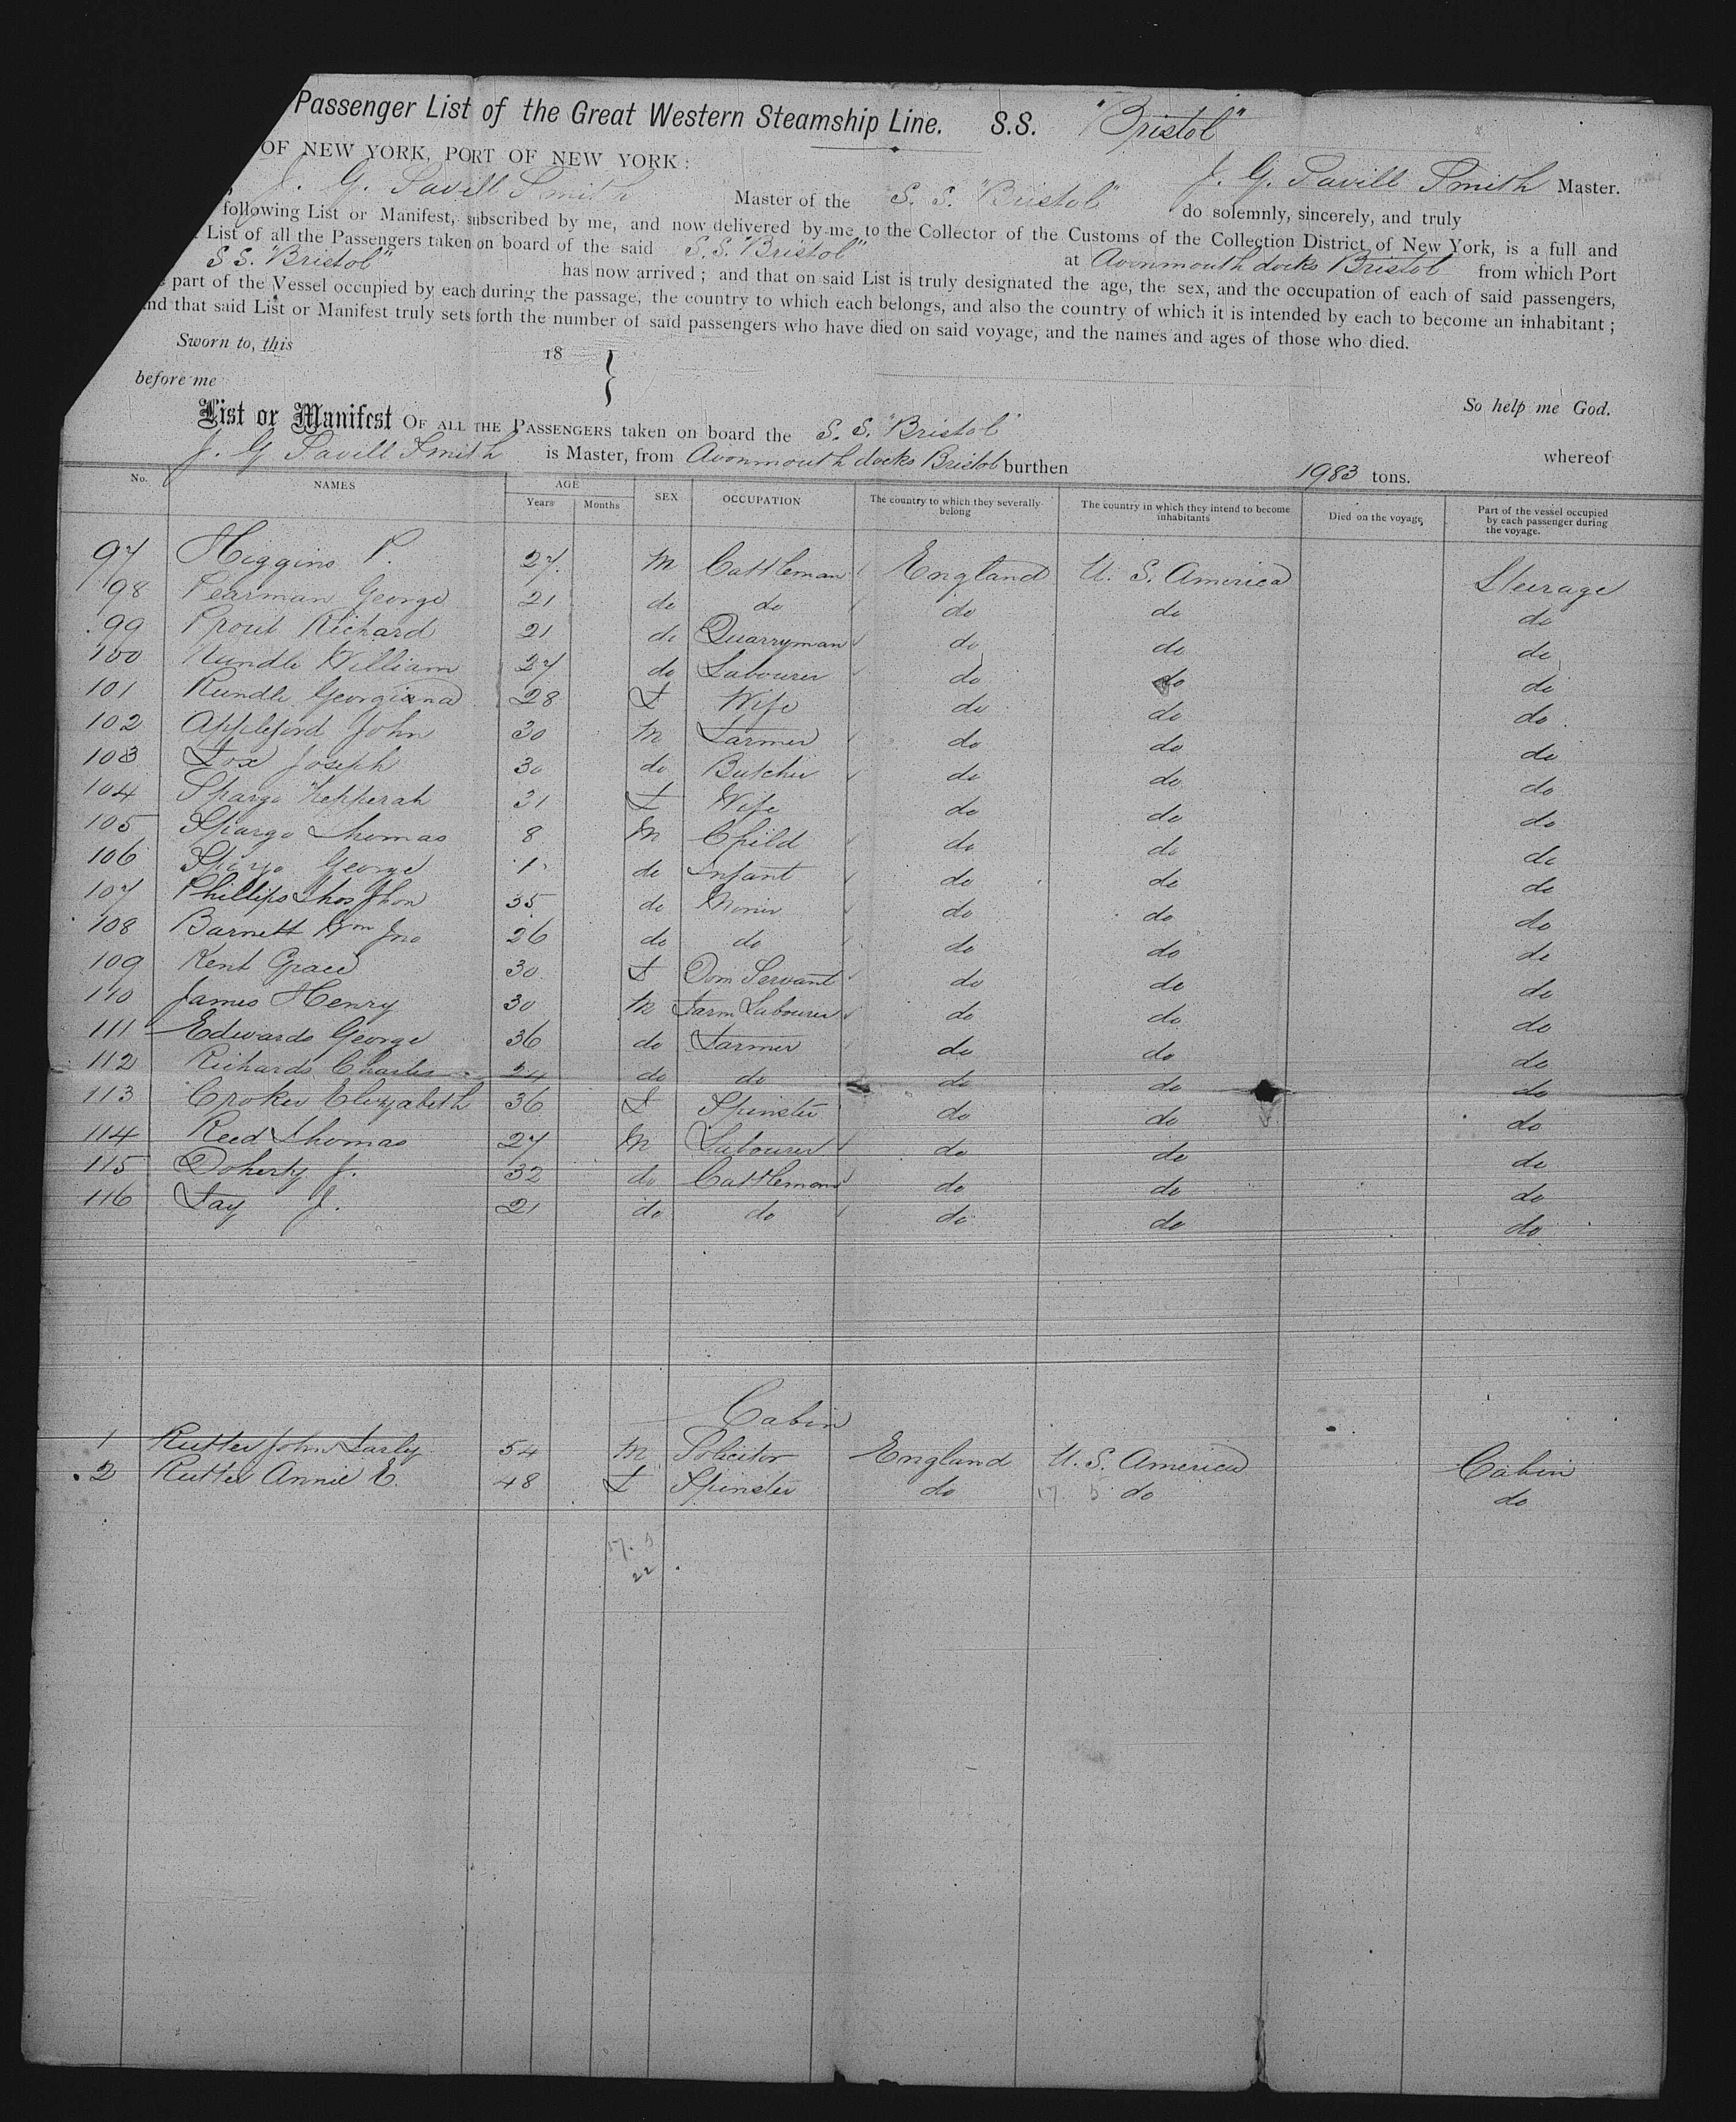 Passenger List of the Great Western Steamship Line. S.S. "Bristol"
OF NEW YORK, PORT OF NEW YORK:
J. G. Savill Smith Master.
J. G. Savill Smith Master of the S. S. "Bristol" do solemnly, sincerely, and truly
following List or Manifest, subscribed by me, and now delivered by me to the Collector of the Customs of the Collection District of New York, is a full and
List of all the Passengers taken on board of the said S.S. "Bristol" at Avonmouth docks Bristol from which Port
S S. "Bristol" has now arrived; and that on said List is truly designated the age, the sex, and the occupation of each of said passengers,
part of the Vessel occupied by each during the passage, the country to which each belongs, and also the country of which it is intended by each to become an inhabitant;
and that said List or Manifest truly sets forth the number of said passengers who have died on said voyage, and the names and ages of those who died.
Sworn to, this 18 }
before me
So help me God.
List or Manifest OF ALL THE PASSENGERS taken on board the S. S. "Bristol" whereof
J. G Savill Smith is Master, from Avonmouth docks Bristol burthen 1983 tons.
No. NAMES AGE Years Months SEX OCCUPATION The country to which they severally belong The country in which they intend to become inhabitants Died on the voyage Part of the vessel occupied by each passenger during the voyage.
97 Higgins P. 27. M Cattleman England U. S. America Steerage
98 Pearman George 21 do do do do do
99 Prout Richard 21 do Quarryman do do do
100 Rundle William 27 do Labourer do do do
101 Rundle Georgiana 28 F Wife do do do
102 Appleford John 30 M Farmer do do do
103 Fox Joseph 30 do Butcher do do do
104 Spargo Kepperah 31 F Wife do do do
105 Spargo Thomas 8 M Child do do do
106 Spargo George 1 do Infant do do do
107 Phillips Thos Jhon 35 do Miner do do do
108 Barnett Wm Jno 26 do do do do do
109 Kent Grace 30 F Dom Servant do do do
110 James Henry 30 M Farm Labourer do do do
111 Edwards George 36 do Farmer do do do
112 Richards Charles 24 do do do do do
113 Croker Elizabeth 36 F Spinster do do do
114 Reed Thomas 27 M Labourer do do do
115 Doherty J. 32 do Cattleman do do do
116 Fay J. 21 do do do do do
Cabin
1 Rutter John Farley 54 M Solicitor England U. S. America Cabin
2 Rutter Annie E. 48 F Spinster do do do
22